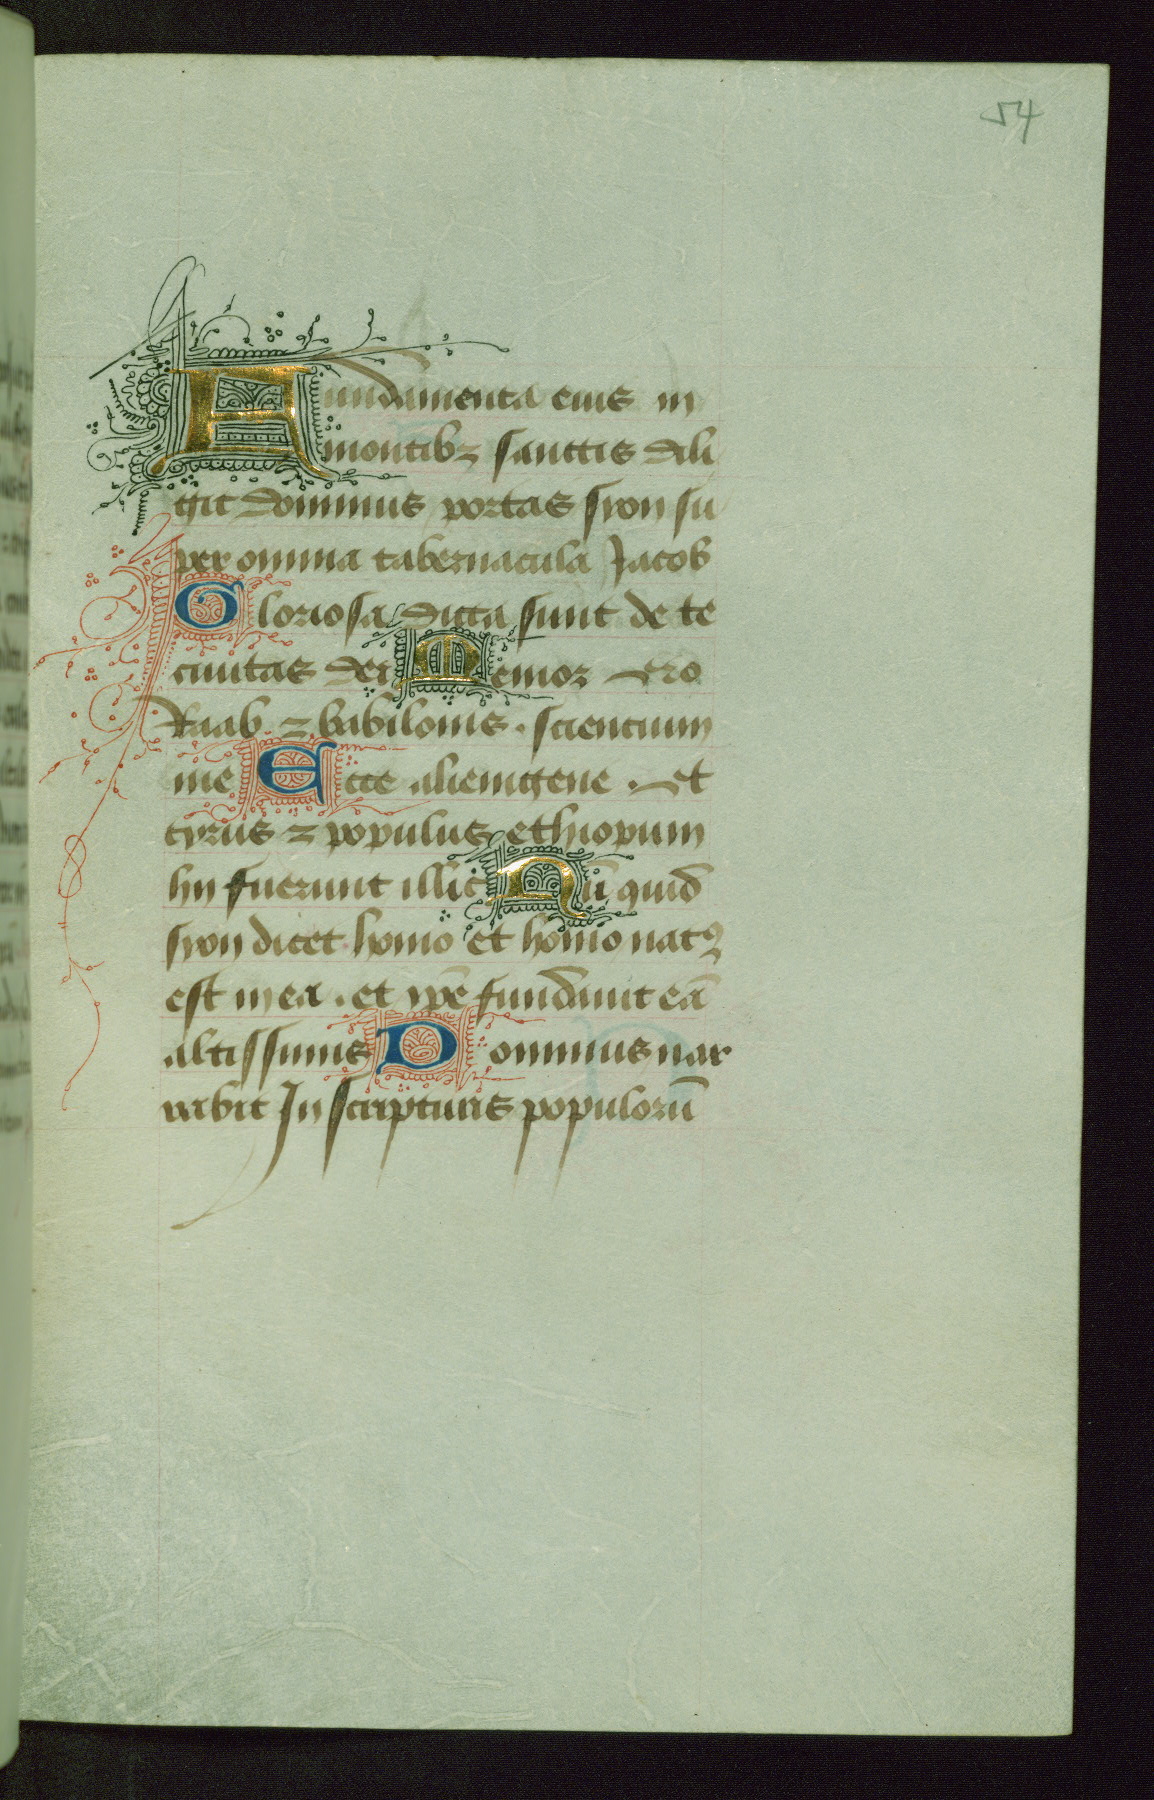 54
Aundamenta eius in
montibꝫ sanctis dili
git dominus portas syon su
per omnia tabernacula Jacob
Gloriosa dicta sunt de te
ciuitas dei Memor ero
Raab ⁊ babilonis . scientium
me Ecce alienigene . et
tyrus ⁊ populus ethiopum
hij fuerunt illic Nū quid
syon dicet homo et homo natꝰ
est in ea . et ip̄e fundauit eā
altissimus Dominus nar
rabit In scripturis populorū